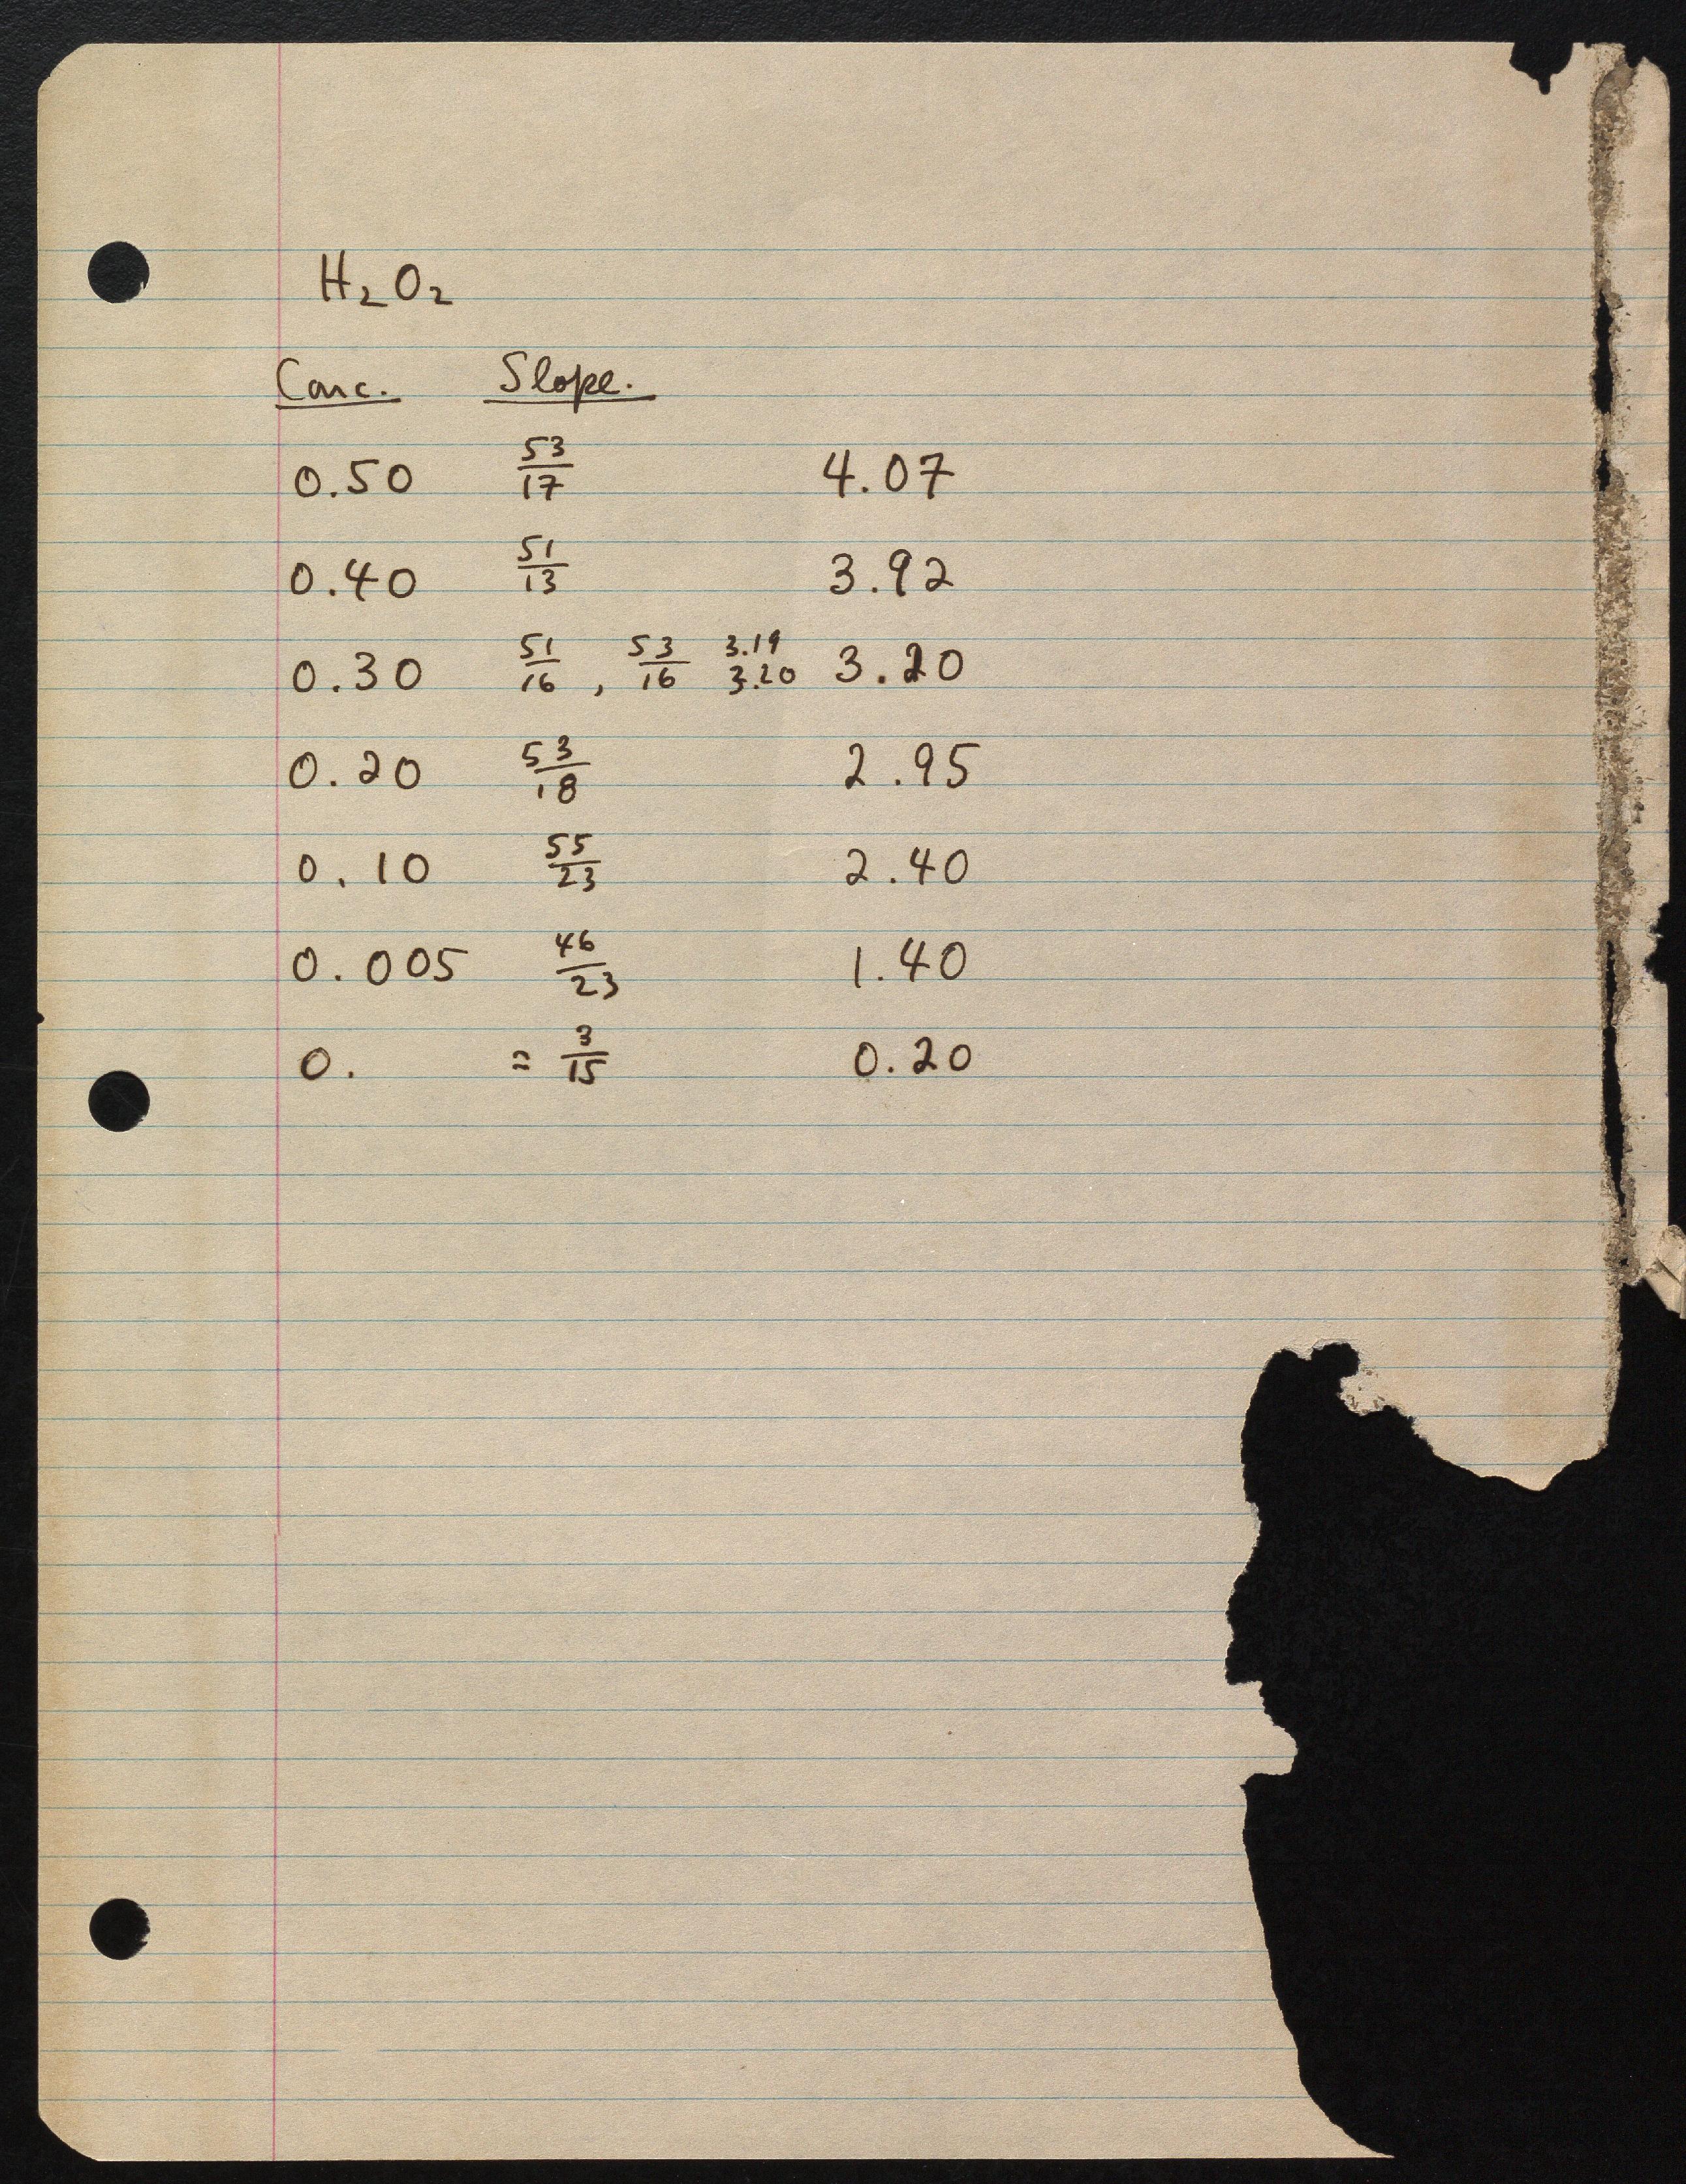 H₂O₂
Conc. Slope.
0.50 53/17 4.07
0.40 51/13 3.92
0.30 51/16, 53/16 3.19 3.20 3.20
0.20 53/18 2.95
0.10 55/23 2.40
0.005 46/23 1.40
0. ≈ 3/15 0.20